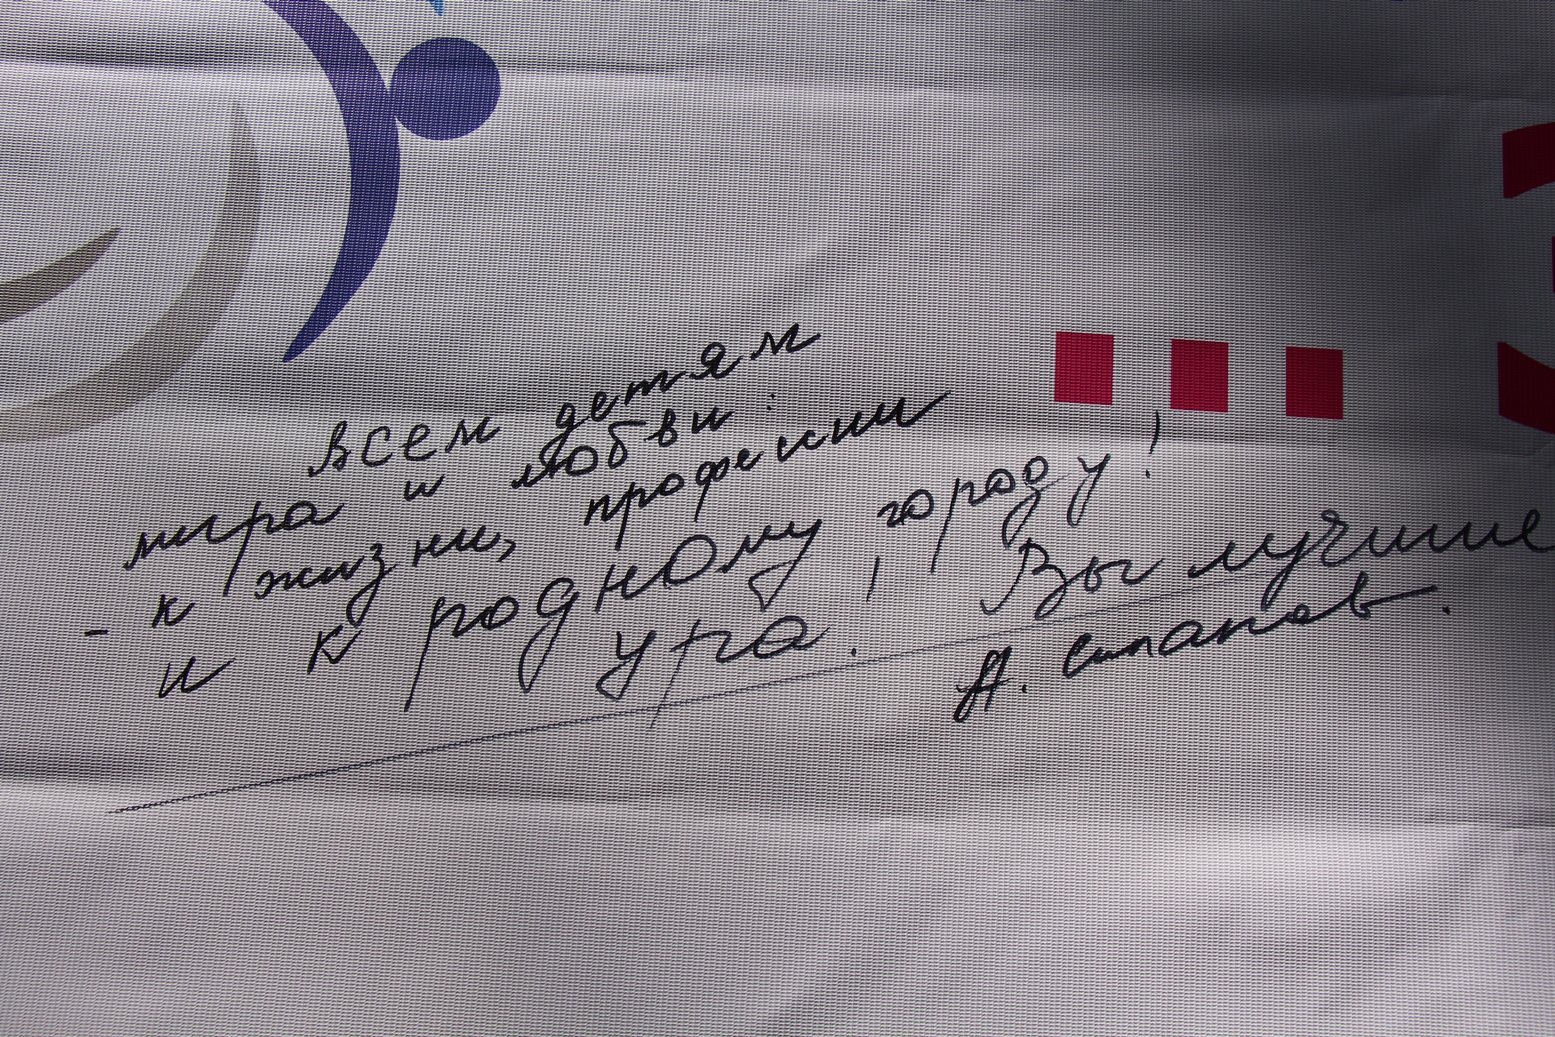 Всем детям
мира и любви:
- к жизни, профессии
и к родному городу!
Ура! Вы лучшие
А. Степанов.
...